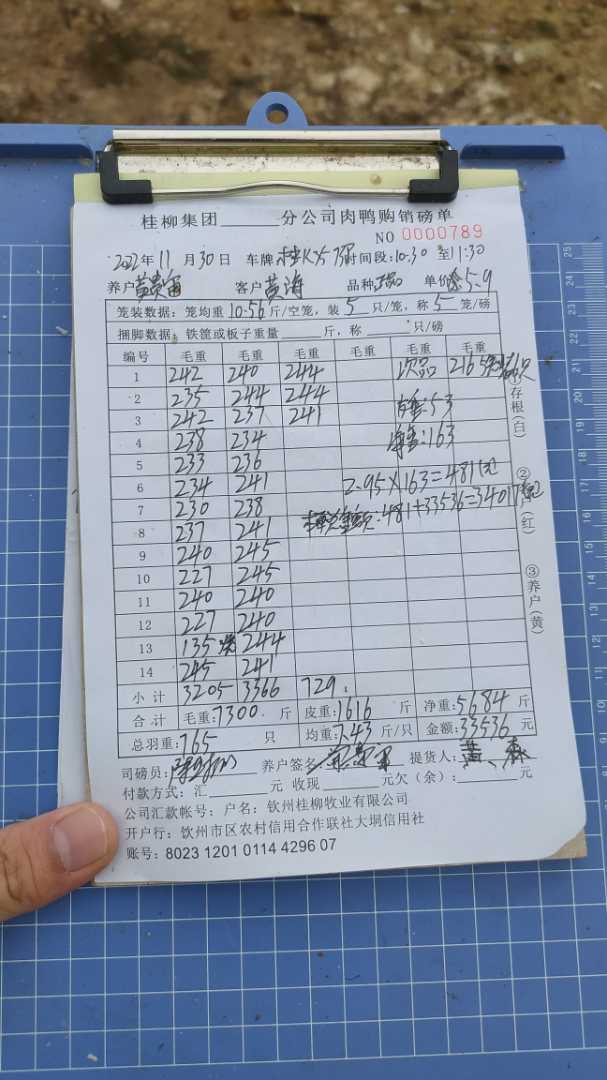 桂柳集团______分公司肉鸭购销磅单
NO 0000789
2022年11月30日 车牌 时间段:10:30 至11:30
养户 客户 黄海 品种 单价 5.9
笼装数据：笼均重10.56斤/空笼，装5只/笼，称5笼/磅
捆脚数据：铁筐或板子重量______斤，称______只/磅
编号 毛重 毛重 毛重 毛重 毛重 毛重
1 242 240 244 次品 216斤
2 235 244 244 :53
3 242 237 241 净重:163
4 238 234
5 233 236
6 234 241 2.95×163=481元
7 230 238 :481+33536=34017
8 237 241
9 240 245
10 227 245
11 240 240
12 227 240
13 135 244
14 245 241
小计 3205 3366 729
合计 毛重:7300斤 皮重:1616斤 净重:5684斤
总羽重:765只 均重:7.43斤/只 金额:33536元
司磅员: 养户签名 提货人:黄
付款方式：汇______元 收现______元欠（余）：______元
公司汇款帐号：户名：钦州桂柳牧业有限公司
开户行：钦州市区农村信用合作联社大垌信用社
账号：8023 1201 0114 4296 07
①存根(白)
②(红)
③养户(黄)